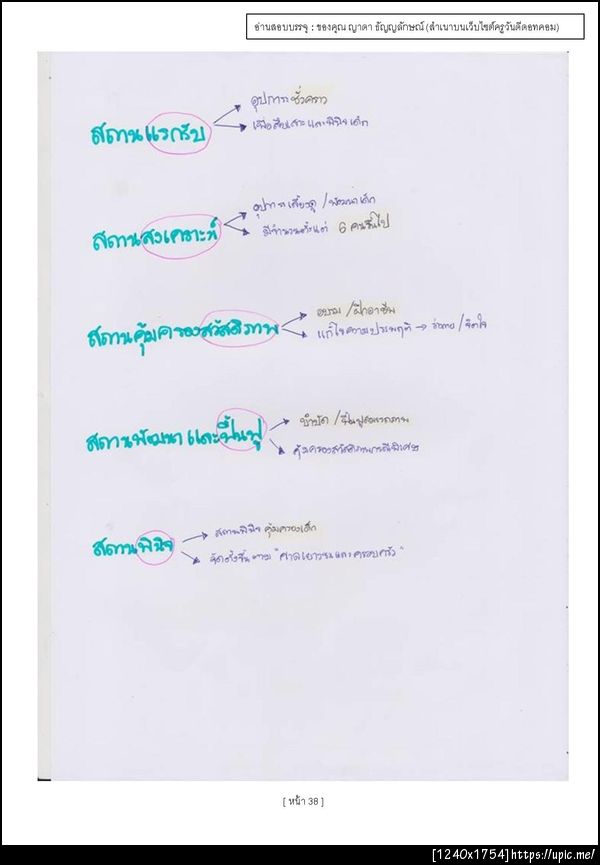 อ่านสอบบรรจุ : ของคุณ ญาดา ธัญญลักษณ์ (สำเนาบนเว็บไซต์ครูวันดีดอทคอม)
อุปการะชั่วคราว
สถานแรกรับ
เพื่อสืบเสาะและพินิจเด็ก
อุปการะเลี้ยงดู / พัฒนาเด็ก
สถานสงเคราะห์
มีจำนวนตั้งแต่ 6 คนขึ้นไป
อบรม / ฝึกอาชีพ
สถานคุ้มครองสวัสดิภาพ
แก้ไขความประพฤติ → ร่างกาย / จิตใจ
บำบัด / ฟื้นฟูสมรรถภาพ
สถานพัฒนาและฟื้นฟู
คุ้มครองสวัสดิภาพกรณีพิเศษ
สถานพินิจคุ้มครองเด็ก
สถานพินิจ
จัดตั้งขึ้นตาม "ศาลเยาวชนและครอบครัว"
[ หน้า 38 ]
[1240x1754]https://upic.me/